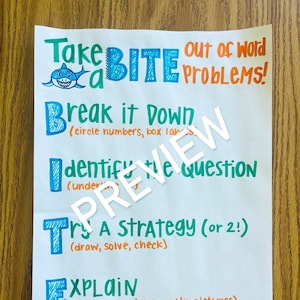 Take a BITE out of Word Problems!
Break it Down
(circle numbers, box labels)
Identify the Question
(underline it)
Try a Strategy (or 2!)
(draw, solve, check)
Explain
PREVIEW